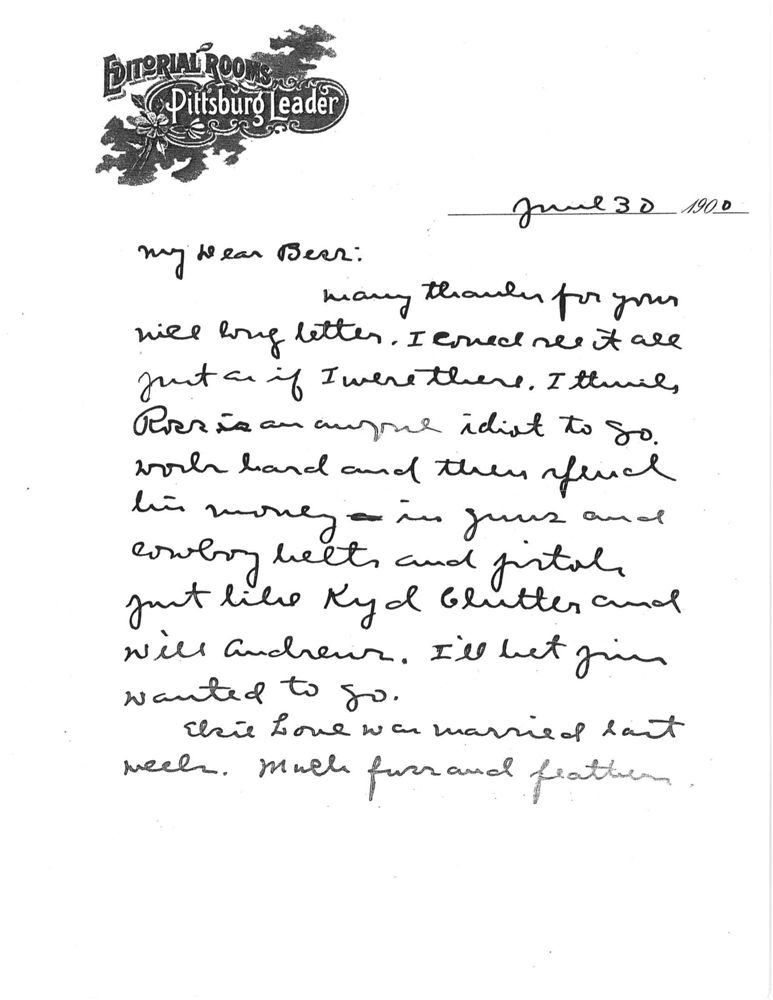 EDITORIAL ROOMS
Pittsburg Leader
June 30 1900
My Dear Bess:
Many thanks for your
nice long letter. I could see it all
just as if I were there. I think
Ross is an idiot to go.
work hard and then spend
his money in guns and
cowboy belts and pistols
just like Kyd Clutter and
Will Andrews. I'll bet Jim
wanted to go.
Elsie Love was married last
week. Much fuss and feathers